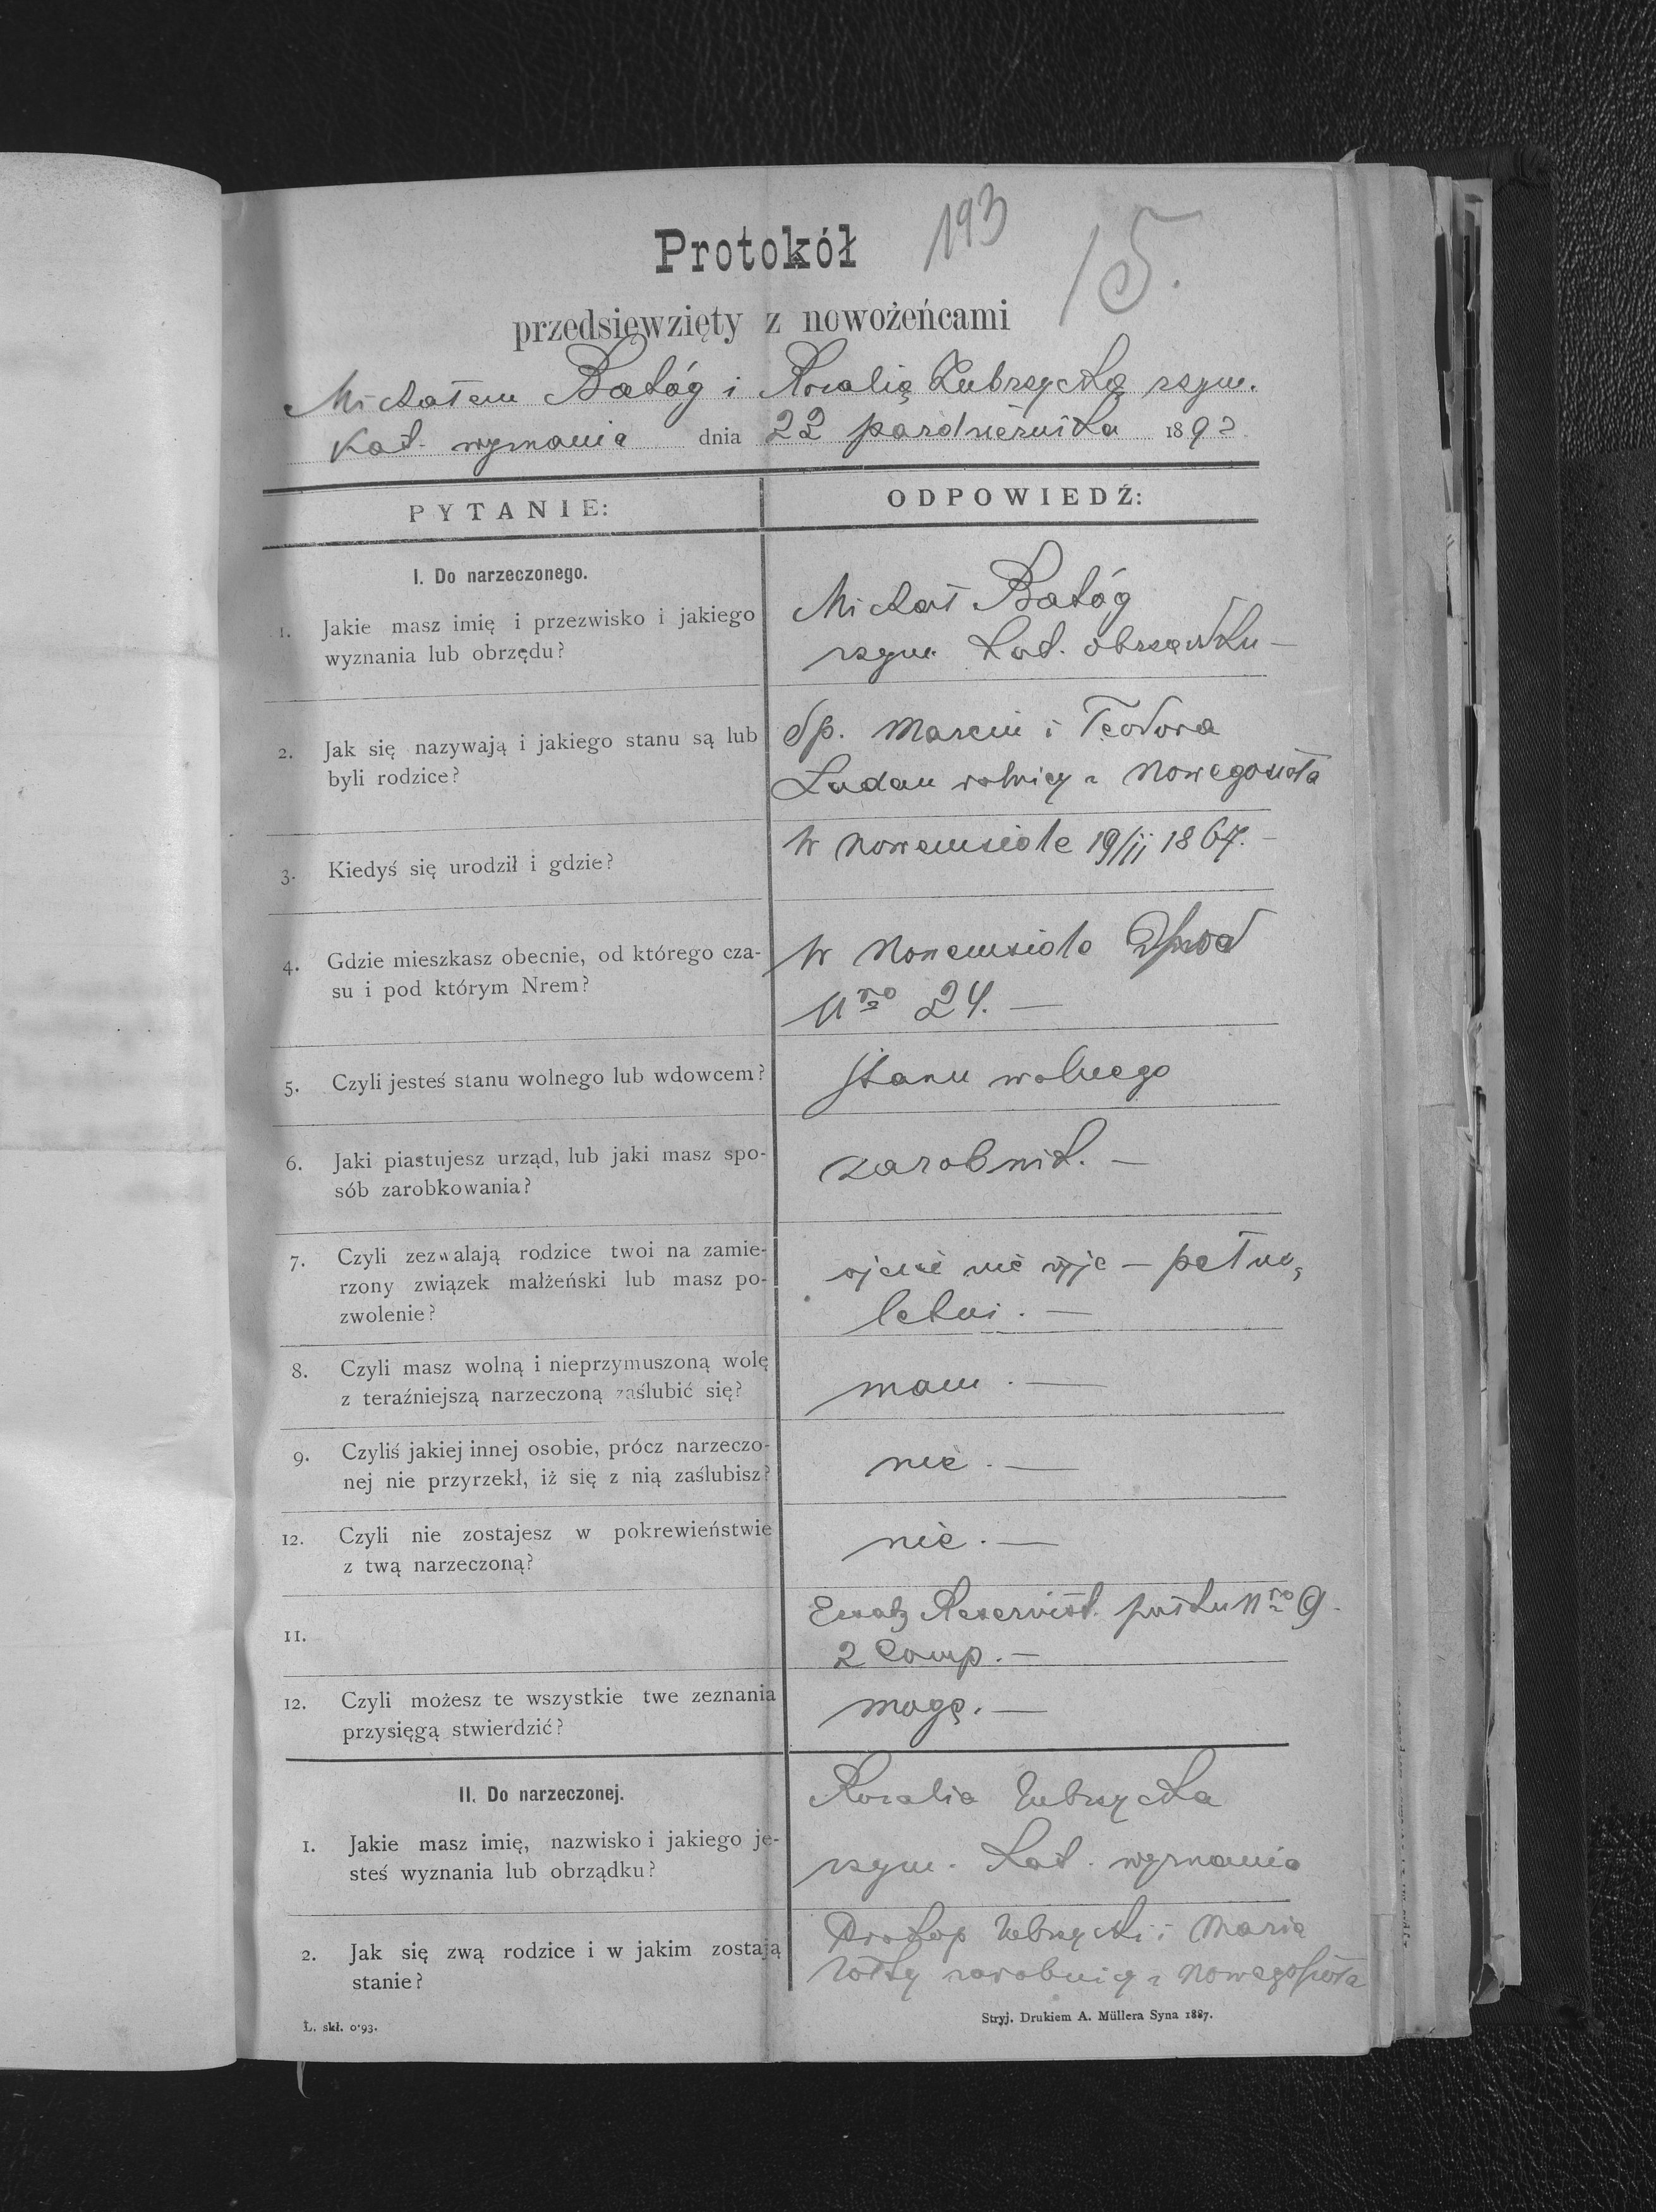 193
15.
Protokół
przedsięwzięty z nowożeńcami
Michałem Batóg i Rozalią Zubrzycką rzym.
Kat. wyznania dnia 22 października 189
PYTANIE:
ODPOWIEDŹ:
I. Do narzeczonego.
1. Jakie masz imię i przezwisko i jakiego
wyznania lub obrzędu?
Michał Batóg
rzym. kat. obrządku —
2. Jak się nazywają i jakiego stanu są lub
byli rodzice?
Sp. Marcin i Teodora
rolnicy z Nowegosioła
3. Kiedyś się urodził i gdzie?
W Nowemsiole 19/11 1867. —
4. Gdzie mieszkasz obecnie, od którego cza-
su i pod którym Nrem?
W Nowemsiole pod
Nro 24. —
5. Czyli jesteś stanu wolnego lub wdowcem?
stanu wolnego
6. Jaki piastujesz urząd, lub jaki masz spo-
sób zarobkowania?
zarobnik. —
7. Czyli zezwalają rodzice twoi na zamie-
rzony związek małżeński lub masz po-
zwolenie?
ojciec nie żyje — pełno-
letni. —
8. Czyli masz wolną i nieprzymuszoną wolę
z teraźniejszą narzeczoną zaślubić się?
mam. —
9. Czyliś jakiej innej osobie, prócz narzeczo-
nej nie przyrzekł, iż się z nią zaślubisz?
nie. —
12. Czyli nie zostajesz w pokrewieństwie
z twą narzeczoną?
nie. —
11.
Ersatz Reservist. pułku Nro 9.
2 Comp. —
12. Czyli możesz te wszystkie twe zeznania
przysięgą stwierdzić?
mogę. —
II. Do narzeczonej.
1. Jakie masz imię, nazwisko i jakiego je-
steś wyznania lub obrządku?
Rozalia Zubrzycka
rzym. Kat. wyznania
2. Jak się zwą rodzice i w jakim zostają
stanie?
Prokop Zubrzycki i Maria
zarobnicy z Nowegosioła
L. skł. 0·93.
Stryj. Drukiem A. Müllera Syna 1887.